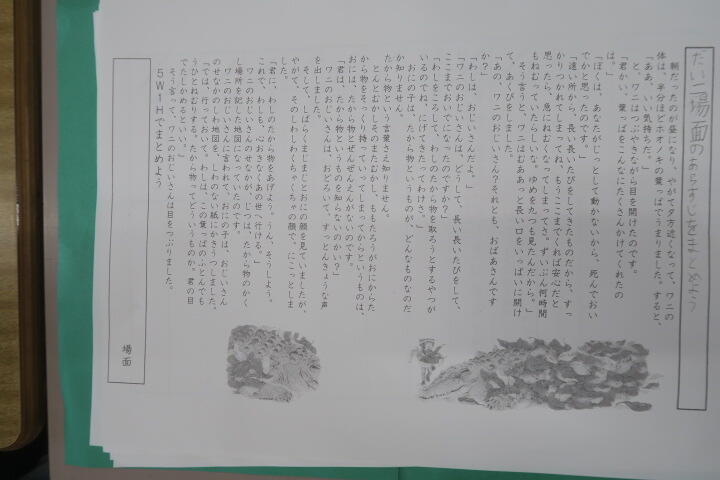 だい二場面のあらすじをまとめよう
朝だったのが昼になり、やがて夕方近くなって、ワニの
体は、半分ほどホオノキの葉っぱでうまりました。すると、
「ああ、いい気持ちだ。」
と、ワニはつぶやきながら目を開けたのです。
「君かい、葉っぱをこんなにたくさんかけてくれたの
は。」
「ぼくは、あなたがじっとして動かないから、死んでおい
でかと思ったのです。」
「遠い所から、長い長いたびをしてきたものだから、すっ
かりつかれてしまってね、もうここまでくれば安心だと
思ったら、急にねむくなってしまってさ。ずいぶん何時間
もねむっていたらしいな。ゆめを九つも見たんだから。」
そう言うと、ワニはむああっと長い口をいっぱいに開け
て、あくびをしました。
「あの、ワニのおじいさん？それとも、おばあさんです
か？」
「わしは、おじいさんだよ。」
「ワニのおじいさんは、どうして、長い長いたびをして、
ここまでおいでになったのですか？」
「わしをころして、わしのたから物を取ろうとするやつが
いるのでね、にげてきたってわけさ。」
おにの子は、たから物というものが、どんなものなのだ
か知りません。
たから物という言葉さえ知りません。
とんとむかしのそのまたむかし、ももたろうがおにからた
から物をそっくり持っていってしまってからというものは、
おには、たから物とぜんぜんえんがないのです。
「君は、たから物というものを知らないのかい？」
ワニのおじいさんは、おどろいて、すっとんきょうな声
を出しました。
そして、しばらくまじまじとおにの顔を見ていましたが、
やがて、そのしわしわくちゃくちゃの顔で、にこっとしま
した。
「君に、わしのたから物をあげよう。うん、そうしよう。
これで、わしも、心おきなくあの世へ行ける。」
ワニのおじいさんのせなかが、じつは、たから物のかく
し場所を記した地図になっていたのです。
ワニのおじいさんに言われて、おにの子は、おじいさん
のせなかのしわ地図を、しわのない紙にかきうつしました。
「では、行っておいで。わしは、この葉っぱのふとんでも
うひとねむりする。たから物ってどういうものか、君の目
でたしかめるといい。」
そう言って、ワニのおじいさんは目をつぶりました。
５Ｗ１Ｈでまとめよう
場面